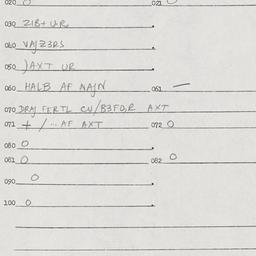 020 O 021 O
030 ZIB+ UR
040 VAJZ3RS
050 )AXT UR
060 HALB AF NAJN 061 —
070 DRAJ FERTL CU/B3FOR AXT
071 + /... AF AXT 072 O
080 O
081 O 082 O
090 O
100 O